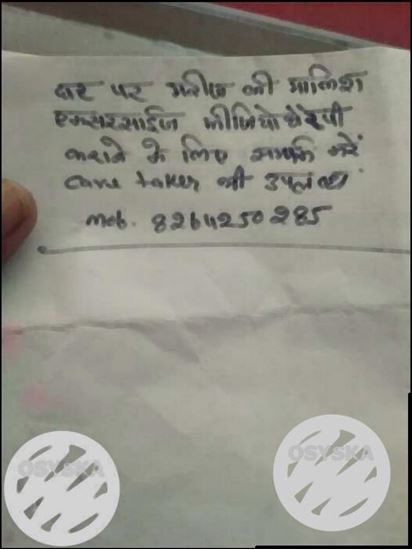 घर पर मरीज की मालिश
एक्सरसाईज फीजियोथेरेपी
कराने के लिए सम्पर्क करें
care taker भी उपलब्ध
mob. 8264250285
OSYSKA
OSYSKA